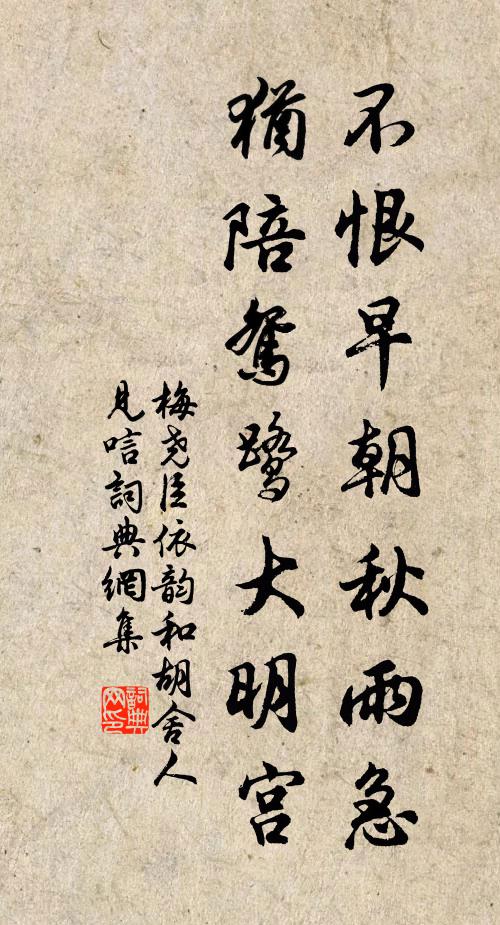 不恨早朝秋雨急
猶陪鴛鷺大明宫
梅尧臣依韵和胡舍人
見唁詞典網集
詞典网印